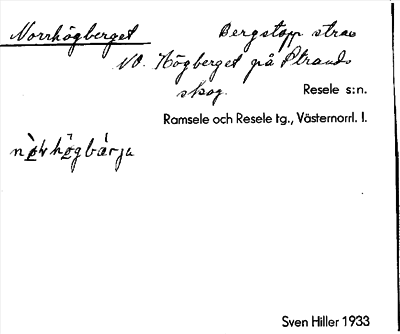 Norrhögberget Bergstopp strax
NO. Högberget på Strands
skog. Resele s:n.
Ramsele och Resele tg., Västernorrl. l.
Sven Hiller 1933